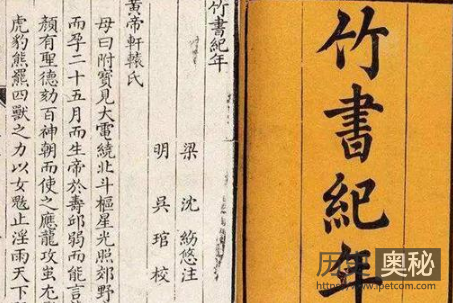 竹書紀年
竹書紀年
梁 沈 約 注
明 吳 琯 校
黃帝軒轅氏
母曰附寶見大電繞北斗樞星光照郊野
而孕二十五月而生帝於壽邱弱而能言
顏有聖德劾百神朝而使之應龍攻蚩尤
虎豹熊羆四獸之力以女魃止淫雨天下
历史奥秘
http://www.ipetcom.com